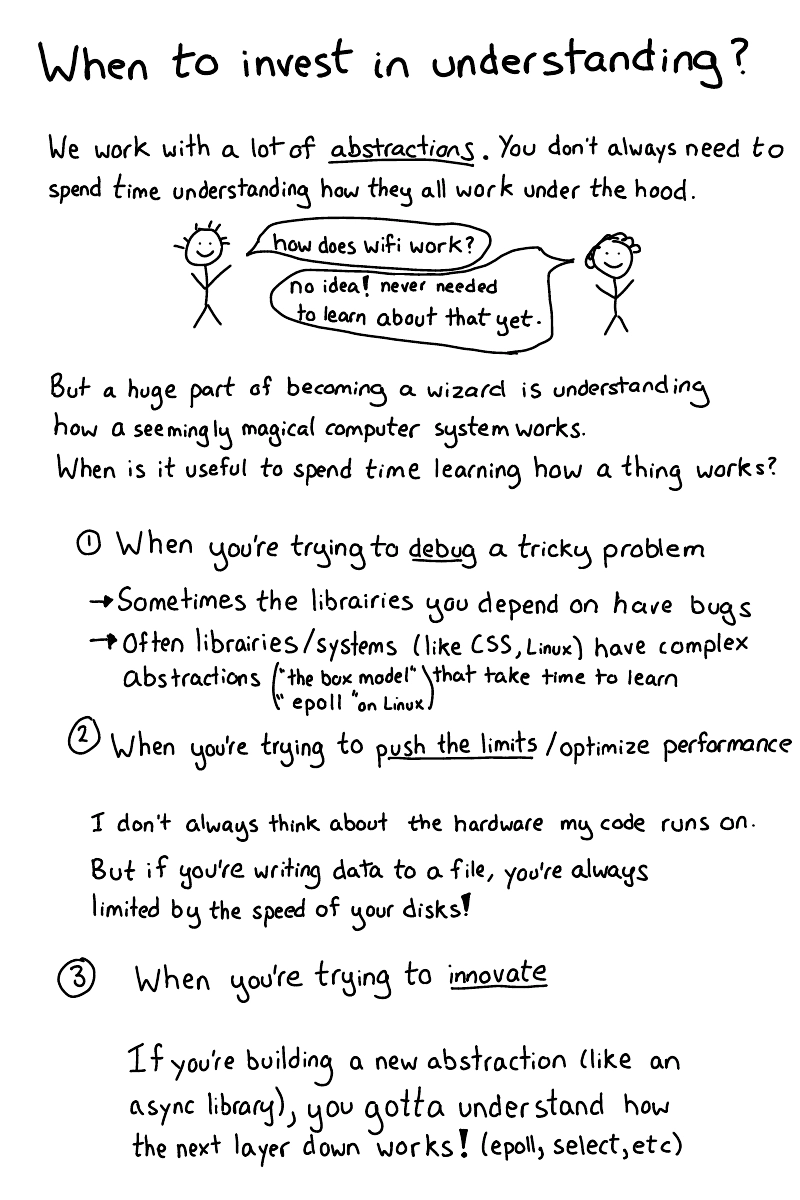 When to invest in understanding?
We work with a lot of abstractions. You don't always need to
spend time understanding how they all work under the hood.
how does wifi work?
no idea! never needed
to learn about that yet.
But a huge part of becoming a wizard is understanding
how a seemingly magical computer system works.
When is it useful to spend time learning how a thing works?
① When you're trying to debug a tricky problem
→ Sometimes the librairies you depend on have bugs
→ Often librairies/systems (like CSS, Linux) have complex
abstractions ("the box model" that take time to learn
"epoll" on Linux)
② When you're trying to push the limits / optimize performance
I don't always think about the hardware my code runs on.
But if you're writing data to a file, you're always
limited by the speed of your disks!
③ When you're trying to innovate
If you're building a new abstraction (like an
async library), you gotta understand how
the next layer down works! (epoll, select, etc)